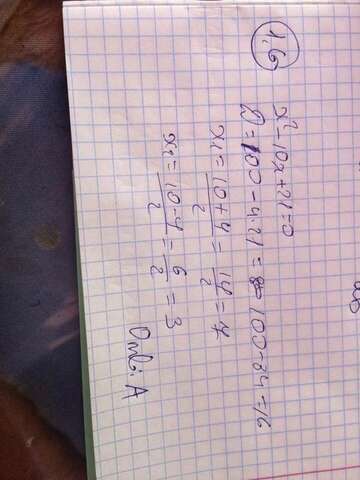 1.6
x² - 10x + 21 = 0
D = 100 - 4·21 = 100 - 84 = 16
x₁ = (10 + 4)/2 = 14/2 = 7
x₂ = (10 - 4)/2 = 6/2 = 3
Отв: А